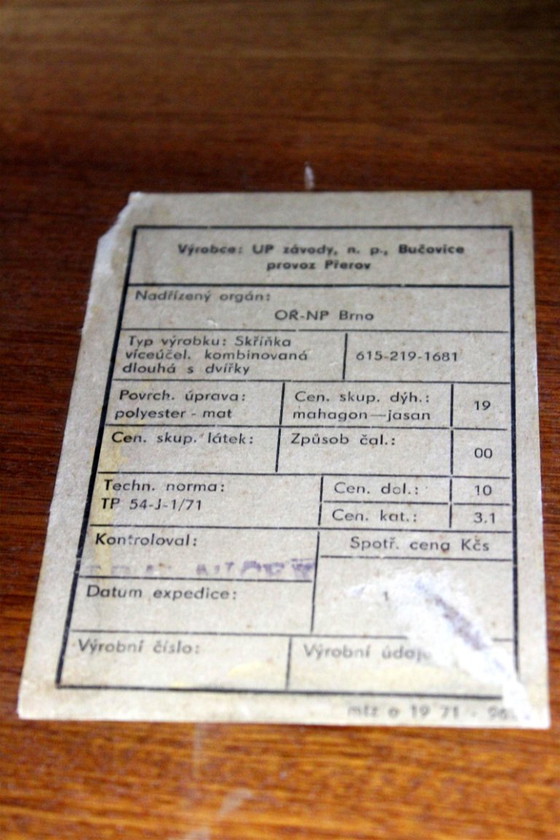 Výrobce: UP závody, n. p., Bučovice
provoz Přerov
Nadřízený orgán:
OŘ-NP Brno
Typ výrobku: Skříňka
víceúčel. kombinovaná
dlouhá s dvířky
615-219-1681
Povrch. úprava:
polyester - mat
Cen. skup. dýh.:
mahagon—jasan
19
Cen. skup. látek:
Způsob čal.:
00
Techn. norma:
TP 54-J-1/71
Cen. dol.:
10
Cen. kat.:
3.1
Kontroloval:
Spotř. cena Kčs
Datum expedice:
Výrobní číslo:
Výrobní
19 71